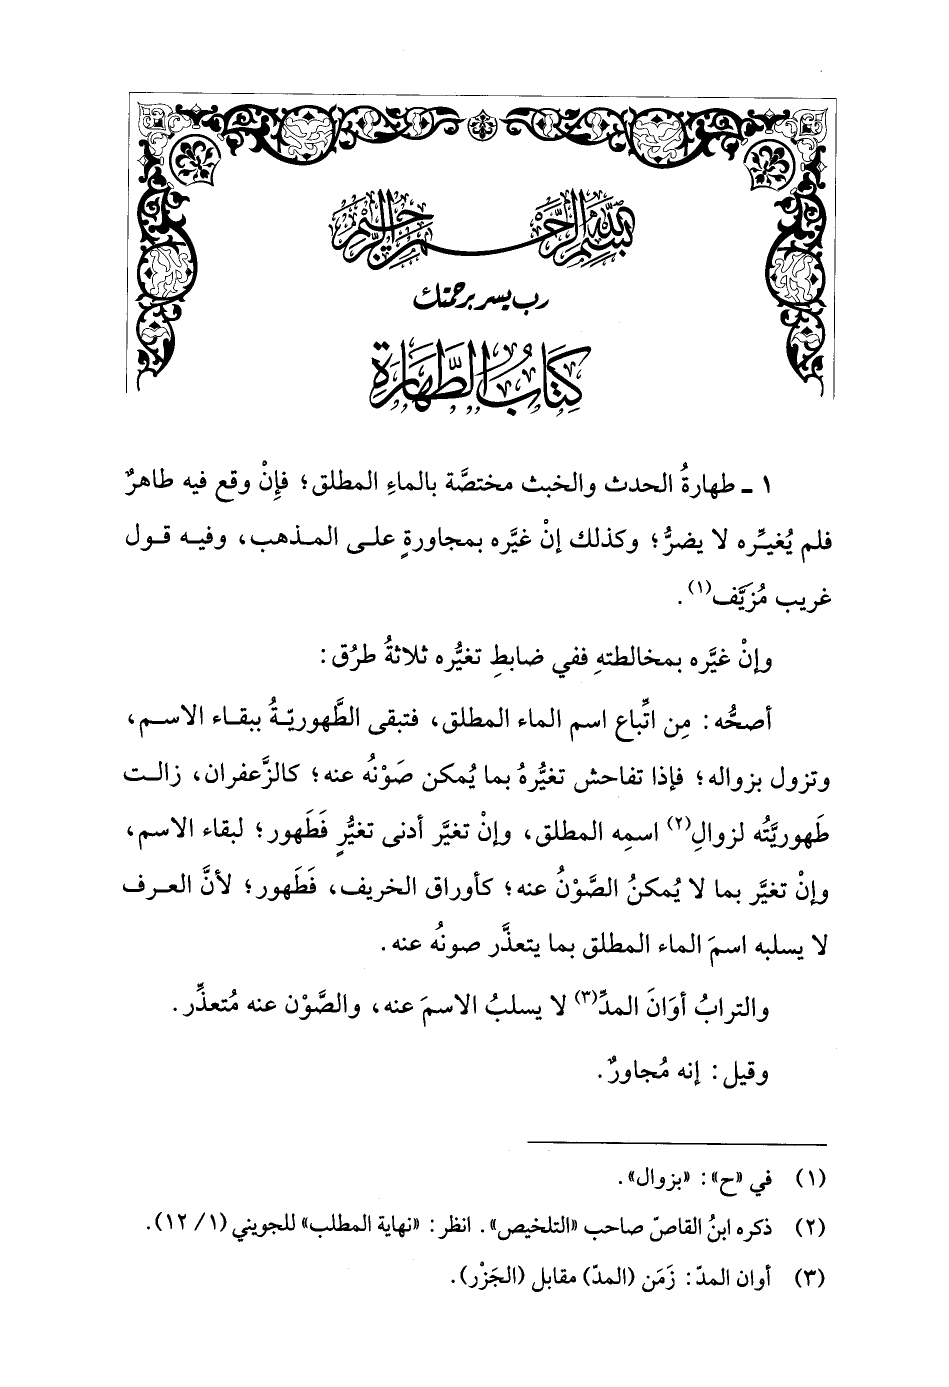 بسم الله الرحمن الرحيم
رب يسر برحمتك
كِتَابُ الطَّهَارَةِ
١ ـ طهارةُ الحدث والخبث مختصَّة بالماءِ المطلق؛ فإنْ وقع فيه طاهرٌ
فلم يُغيِّره لا يضرُّ؛ وكذلك إنْ غيَّره بمجاورةٍ على المذهب، وفيه قول
غريب مُزَيَّف(١).
وإنْ غيَّره بمخالطتهِ ففي ضابطِ تغيُّره ثلاثةُ طرُق:
أصحُّه: مِن اتِّباع اسم الماء المطلق، فتبقى الطَّهوريّةُ ببقاء الاسم،
وتزول بزواله؛ فإذا تفاحش تغيُّرهُ بما يُمكن صَوْنُه عنه؛ كالزَّعفران، زالت
طَهوريَّتُه لزوالِ(٢) اسمِه المطلق، وإنْ تغيَّر أدنى تغيُّرٍ فَطَهور؛ لبقاء الاسم،
وإنْ تغيَّر بما لا يُمكنُ الصَّوْنُ عنه؛ كأوراق الخريف، فَطَهور؛ لأنَّ العرف
لا يسلبه اسمَ الماء المطلق بما يتعذَّر صونُه عنه.
والترابُ أوَانَ المدِّ(٣) لا يسلبُ الاسمَ عنه، والصَّوْن عنه مُتعذِّر.
وقيل: إنه مُجاورٌ.
(١) في «ح»: «بزوال».
(٢) ذكره ابنُ القاصّ صاحب «التلخيص». انظر: «نهاية المطلب» للجويني (١/ ١٢).
(٣) أوان المدّ: زَمَن (المدّ) مقابل (الجَزْر).